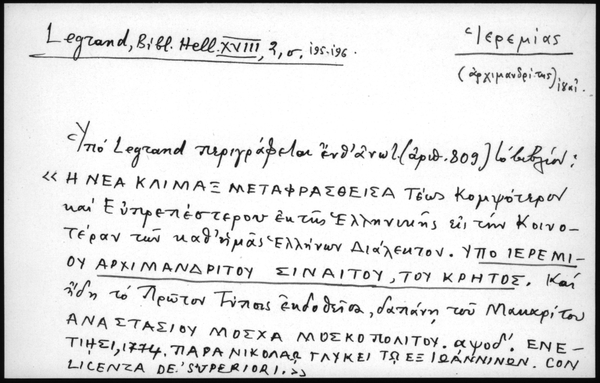 Legrand, Bibl. Hell. XVIII, 2, σ. 195-196.
Ἱερεμίας
(ἀρχιμανδρίτης)
Ὑπὸ Legrand περιγράφεται ἔνθ' ἀνωτ. (ἀριθ. 809) τὸ βιβλίον:
«Η ΝΕΑ ΚΛΙΜΑΞ ΜΕΤΑΦΡΑΣΘΕΙΣΑ Τέως Κομψότερον
καὶ Εὐπρεπέστερον ἐκ τῆς Ἑλληνικῆς εἰς τὴν Κοινο-
τέραν τῶν καθ' ἡμᾶς Ἑλλήνων Διάλεκτον. ΥΠΟ ΙΕΡΕΜΙ-
ΟΥ ΑΡΧΙΜΑΝΔΡΙΤΟΥ ΣΙΝΑΙΤΟΥ, ΤΟΥ ΚΡΗΤΟΣ. Καὶ
ἤδη τὸ Πρῶτον Τύποις ἐκδοθεῖσα, δαπάνῃ τοῦ Μακαρίτου
ΑΝΑΣΤΑΣΙΟΥ ΜΟΣΧΑ ΜΟΣΚΟΠΟΛΙΤΟΥ. αψοδ'. ΕΝΕ-
ΤΙΗΣΙ, 1774. ΠΑΡΑ ΝΙΚΟΛΑΩ ΓΛΥΚΕΙ ΤΩ ΕΞ ΙΩΑΝΝΙΝΩΝ. CON
LICENZA DE' SUPERIORI.»